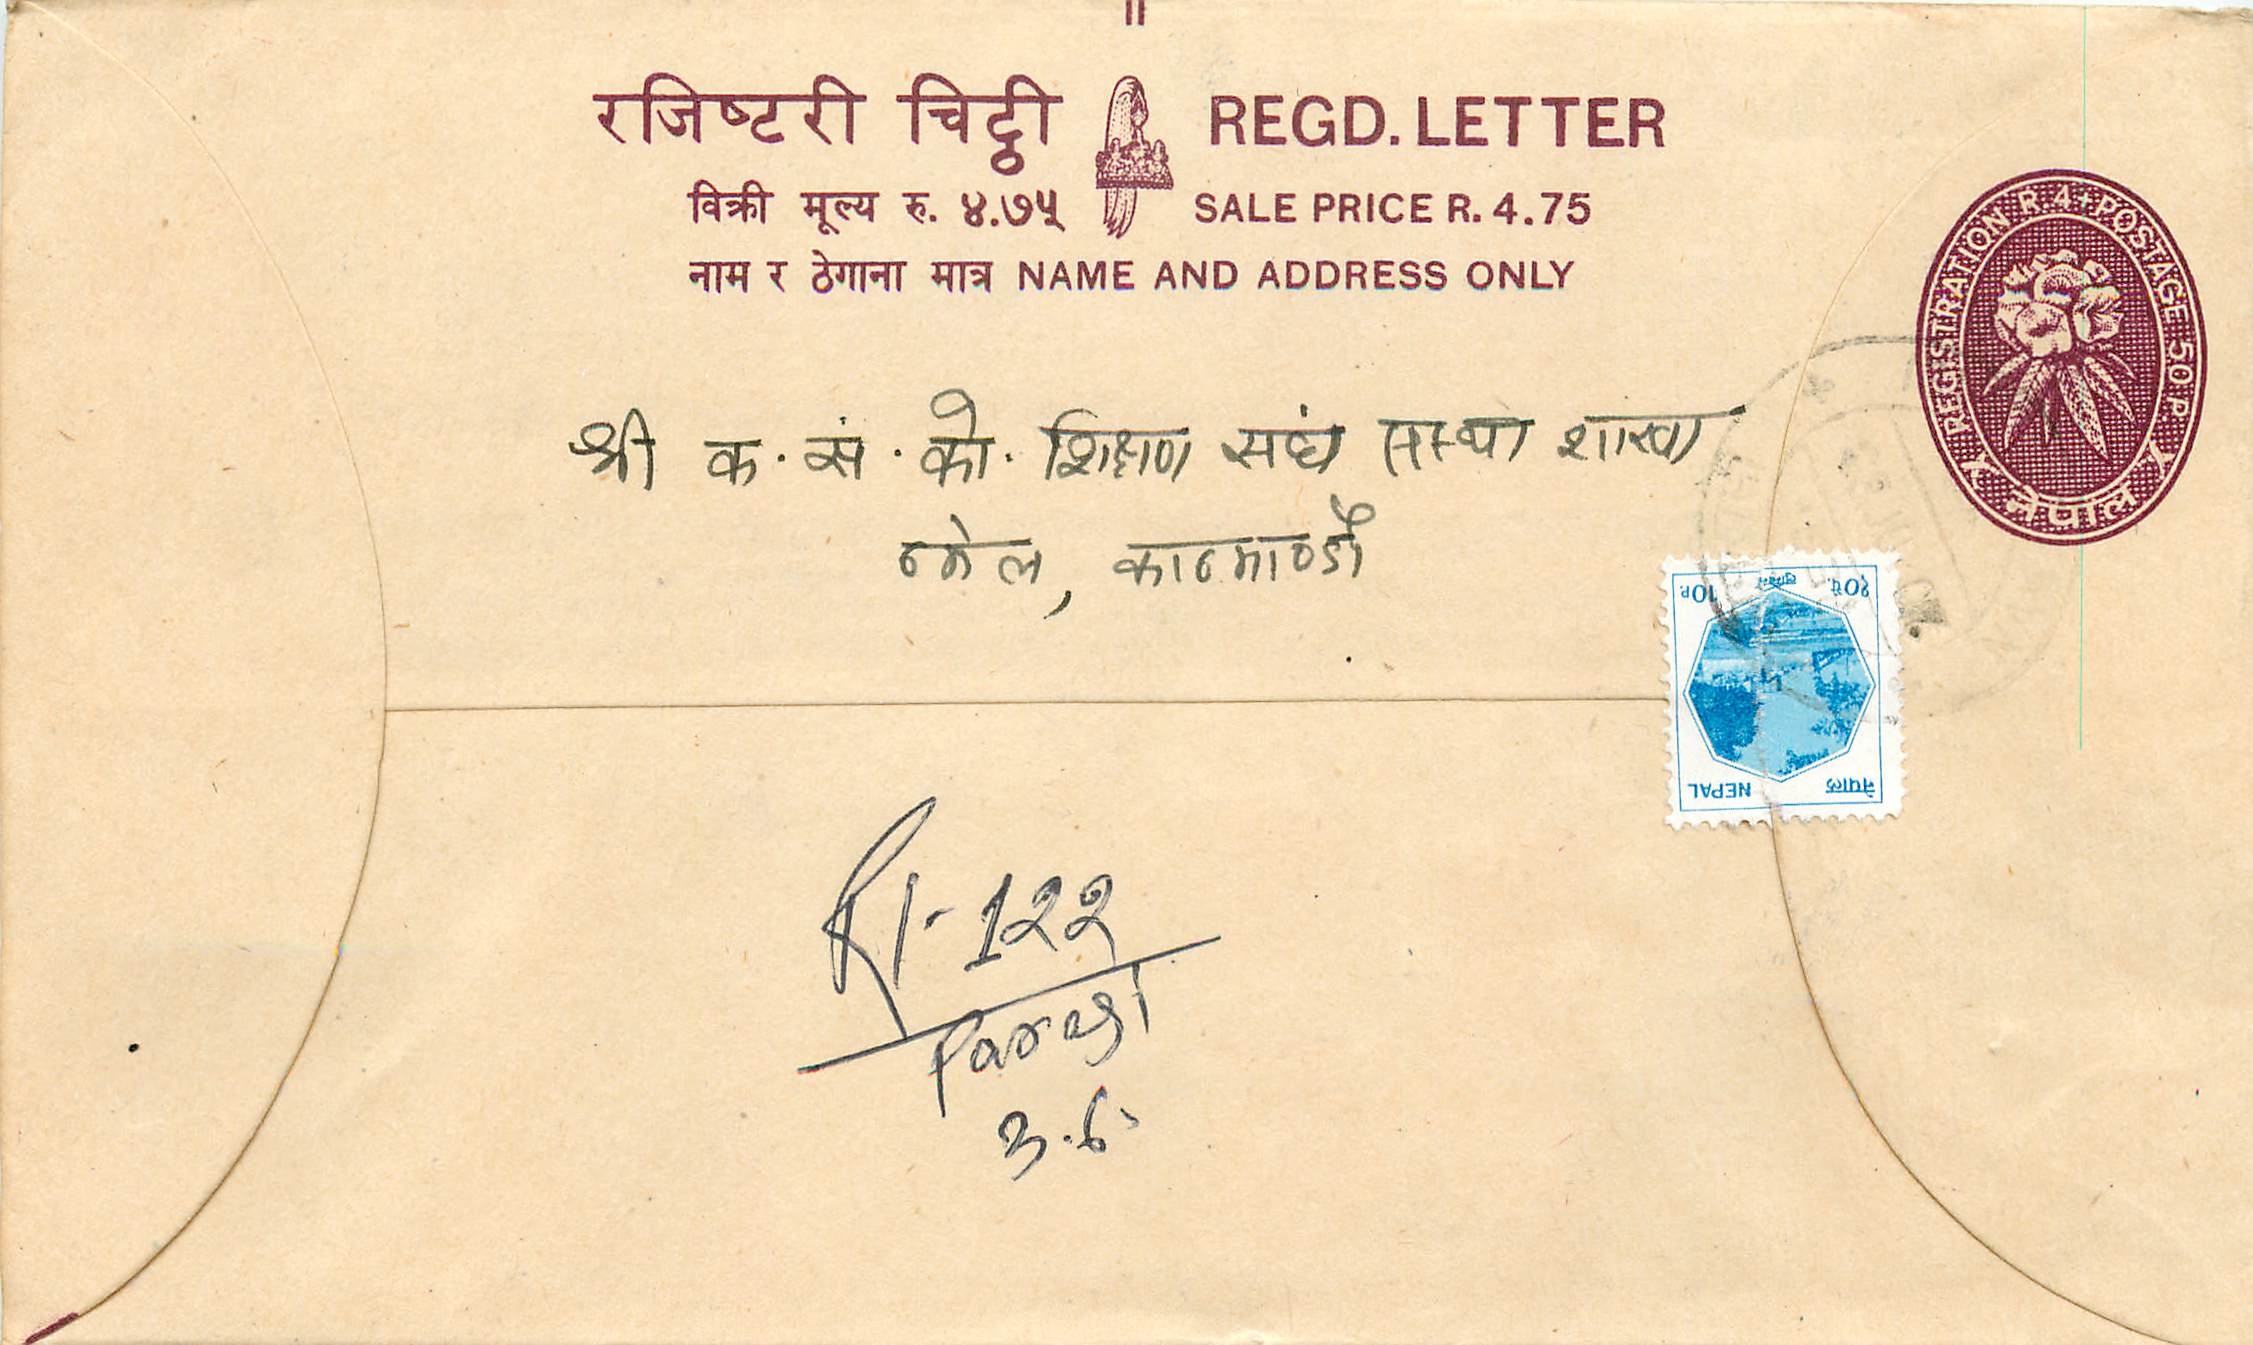 रजिष्टरी चिट्ठी REGD. LETTER
विक्री मूल्य रु. ४.७५ SALE PRICE R. 4.75
नाम र ठेगाना मात्र NAME AND ADDRESS ONLY
REGISTRATION R. 4 + POSTAGE 50 P.
नेपाल
श्री क. सं. को. शिक्षण संघ सस्था शाखा
ठमेल, काठमाण्डौ
नेपाल NEPAL
१०पै. लुम्बिनी 10P.
R1-122
Parasi
3.6